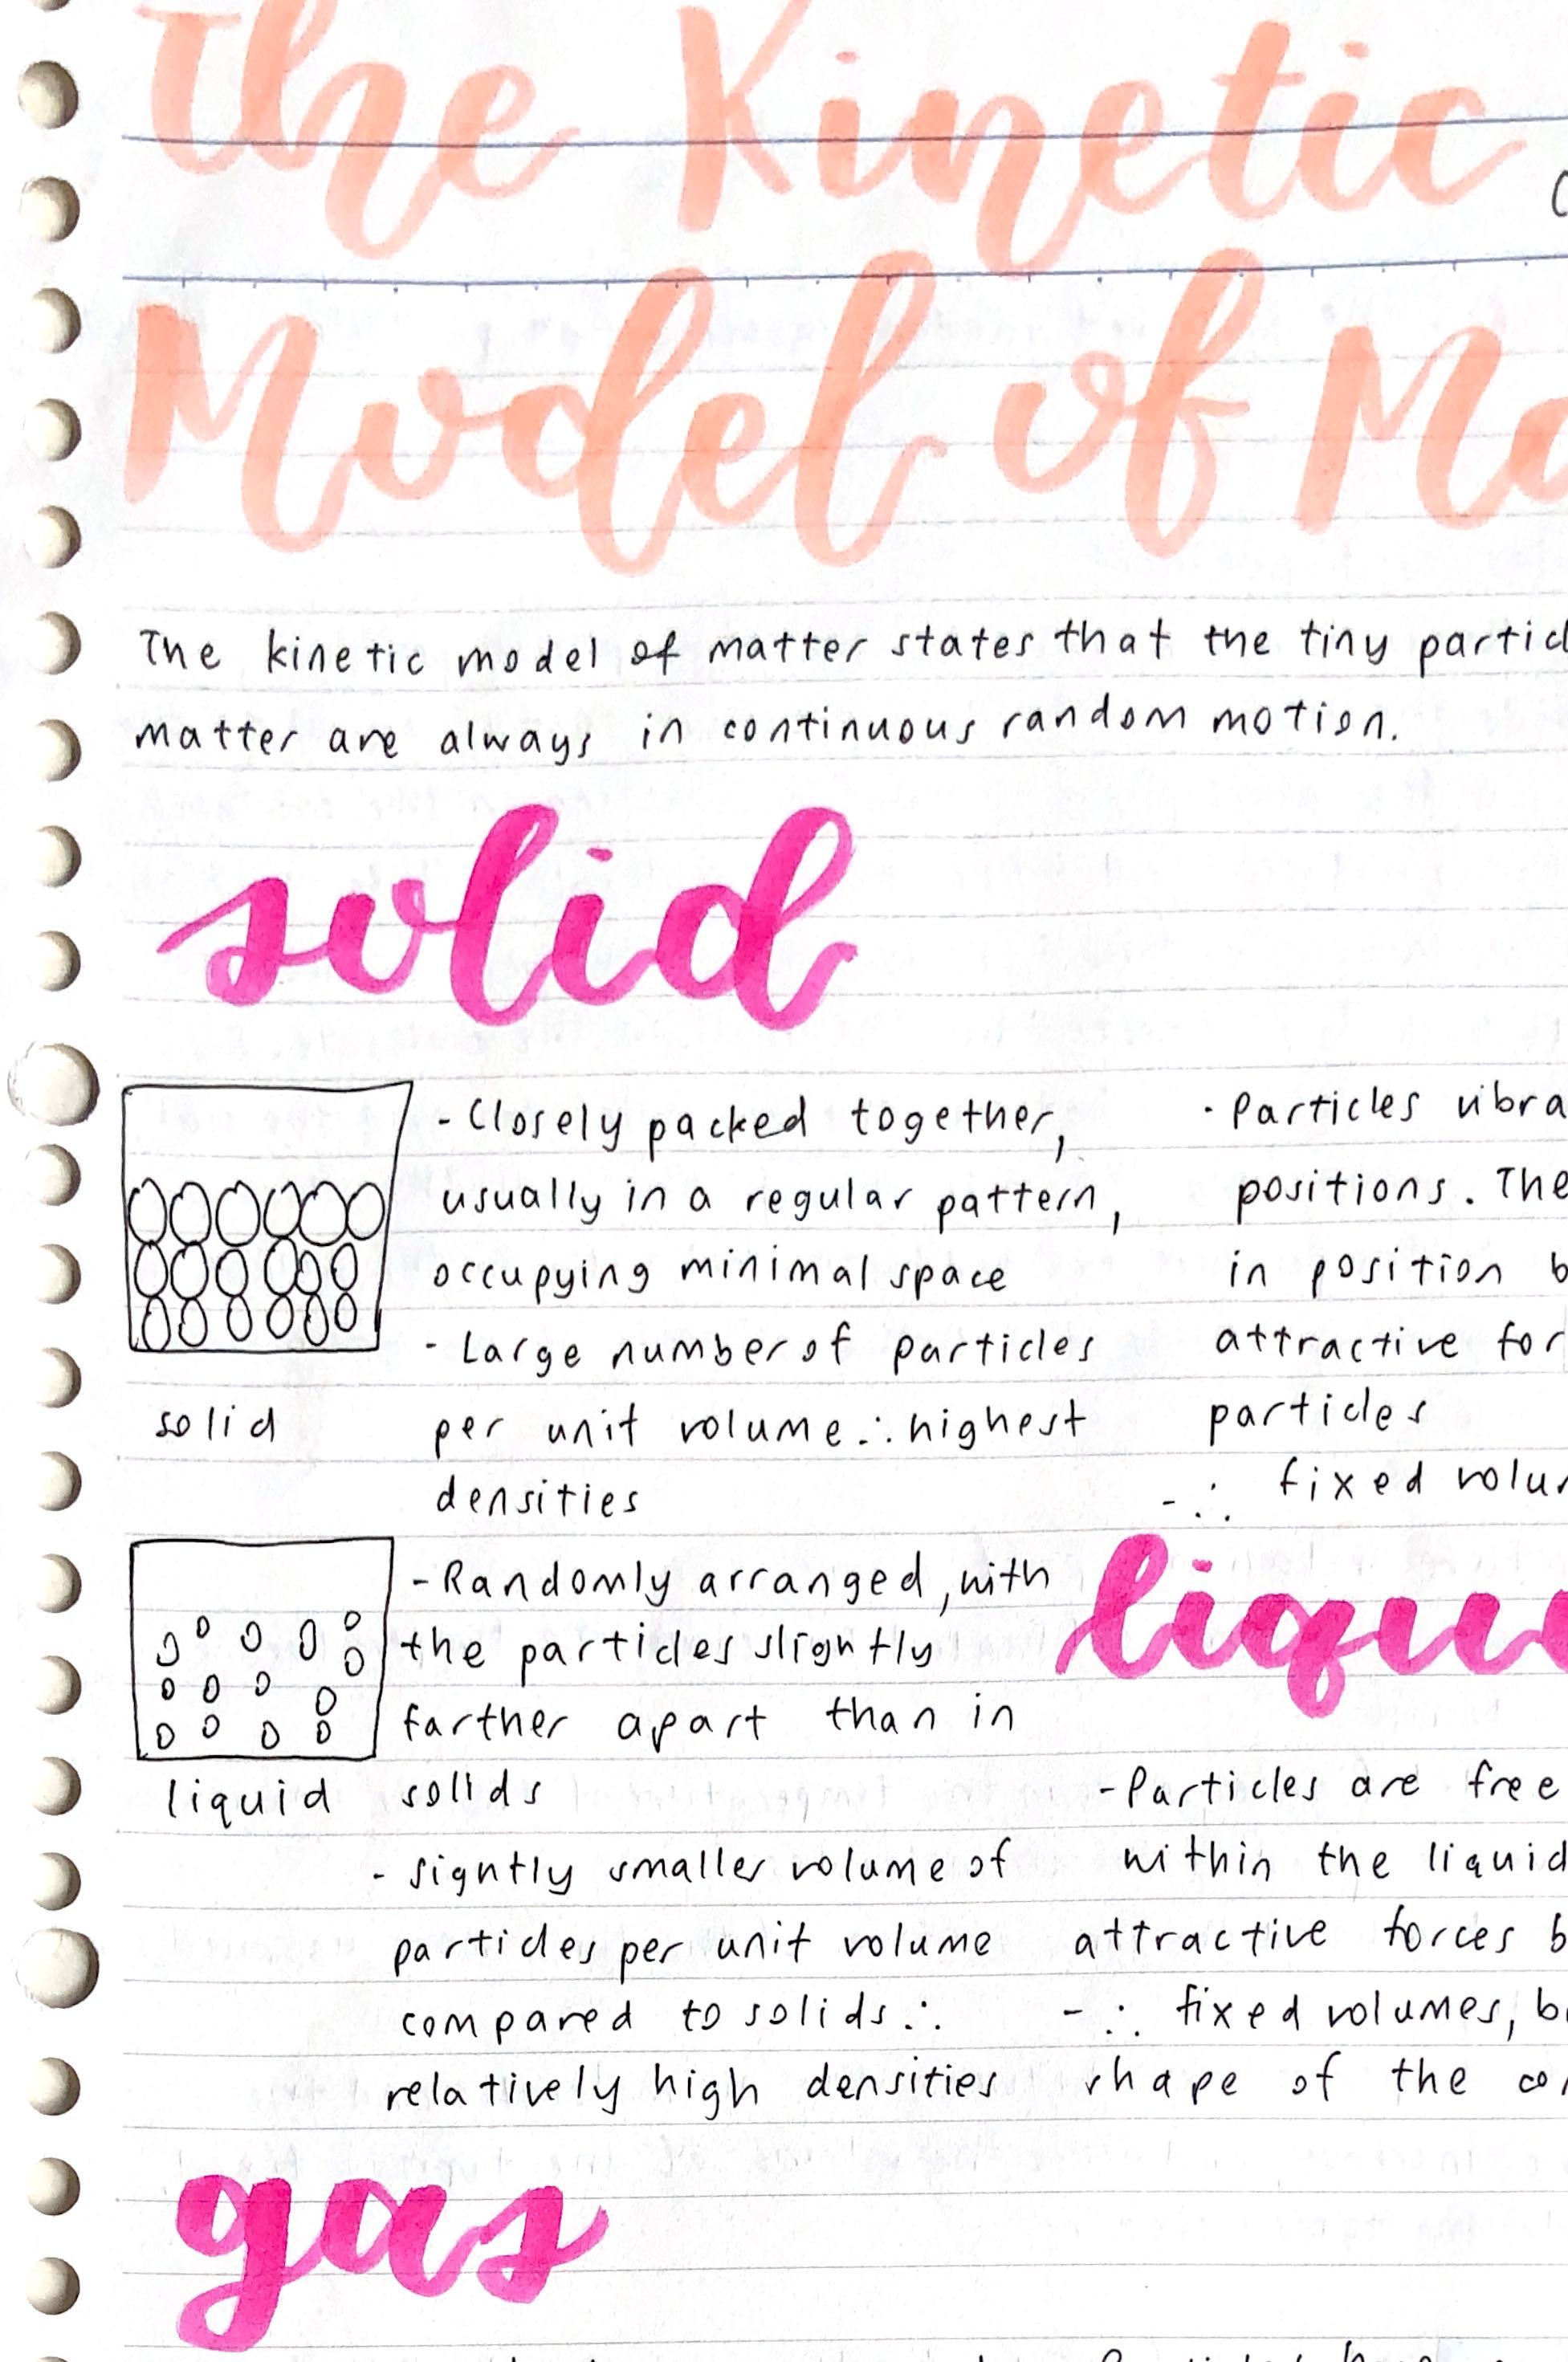 The Kinetic
Model of
The kinetic model of matter states that the tiny
matter are always in continuous random motion.
solid
- Closely packed together,
usually in a regular pattern,
occupying minimal space
- Large number of particles
per unit volume ∴ highest
densities
solid
· Particles
positions. The
in position
attractive
particles
- ∴ fixed
- Randomly arranged, with
the particles slightly
farther apart than in
solids
liquid
- sightly smaller volume of
particles per unit volume
compared to solids ∴
relatively high densities
- Particles are free
within the liquid
attractive forces
- ∴ fixed volumes,
shape of the
gas